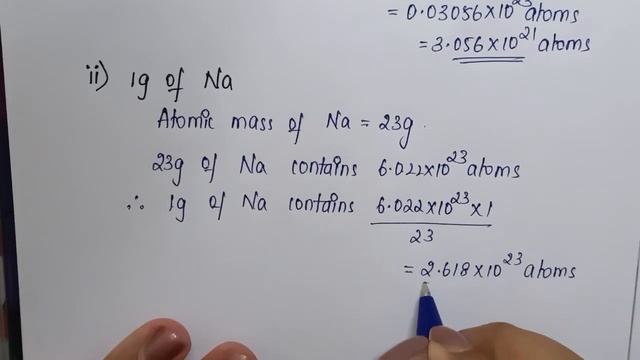 = 0.03056×10²³ atoms
= 3.056×10²¹ atoms
ii) 1g of Na
Atomic mass of Na = 23g.
23g of Na contains 6.022×10²³ atoms
∴ 1g of Na contains 6.022×10²³×1
23
= 2.618×10²³ atoms